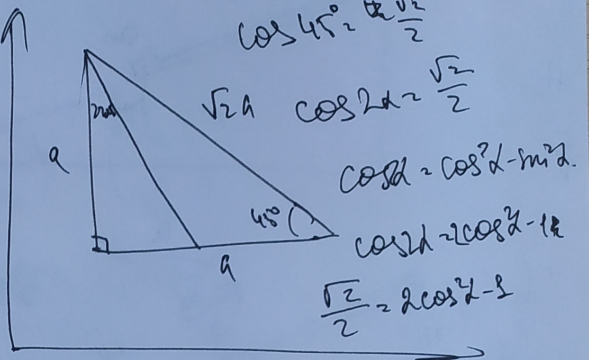 cos 45° = √2/2
a
√2 a
cos2α = √2/2
cosα = cos²α - sin²α.
45°
a
cos2α = 2cos²α - 1
√2/2 = 2cos²α - 1